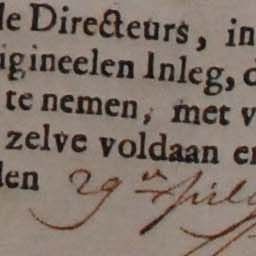 de Directeurs, in
igineelen Inleg, d
te nemen, met v
zelve voldaan en
den 29n April